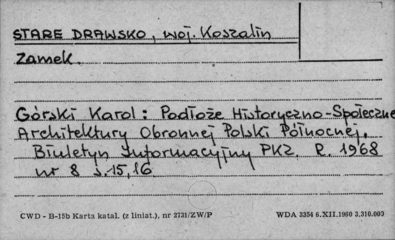 STARE DRAWSKO, woj. Koszalin
Zamek.
Górski Karol: Podłoże Historyczno-Społeczne
Architektury Obronnej Polski Północnej.
Biuletyn Informacyjny PKZ. R. 1968
nr 8 s. 15, 16
CWD - B-15b Karta katal. (z liniat.), nr 2731/ZW/P WDA 3354 6.XII.1960 3.310.000